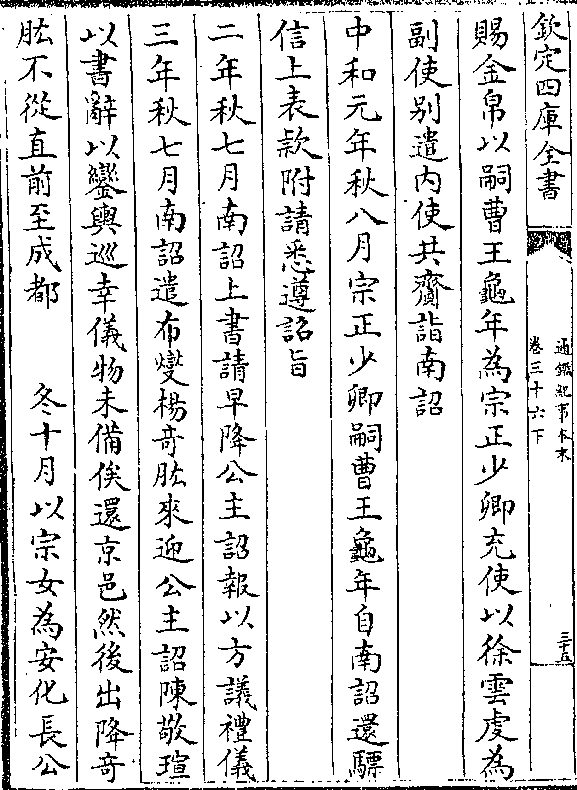 欽定四庫全書
通鑑紀事本末
卷三十六下
三十五
賜金帛以嗣曹王龜年為宗正少卿充使以徐雲虔為
副使别遣内使共齎詣南詔
中和元年秋八月宗正少卿嗣曹王龜年自南詔還驃
信上表款附請悉遵詔旨
二年秋七月南詔上書請早降公主詔報以方議禮儀
三年秋七月南詔遣布燮楊竒肱來迎公主詔陳敬瑄
以書辭以鑾輿巡幸儀物未備俟還京邑然後出降竒
肱不從直前至成都　　冬十月以宗女為安化長公